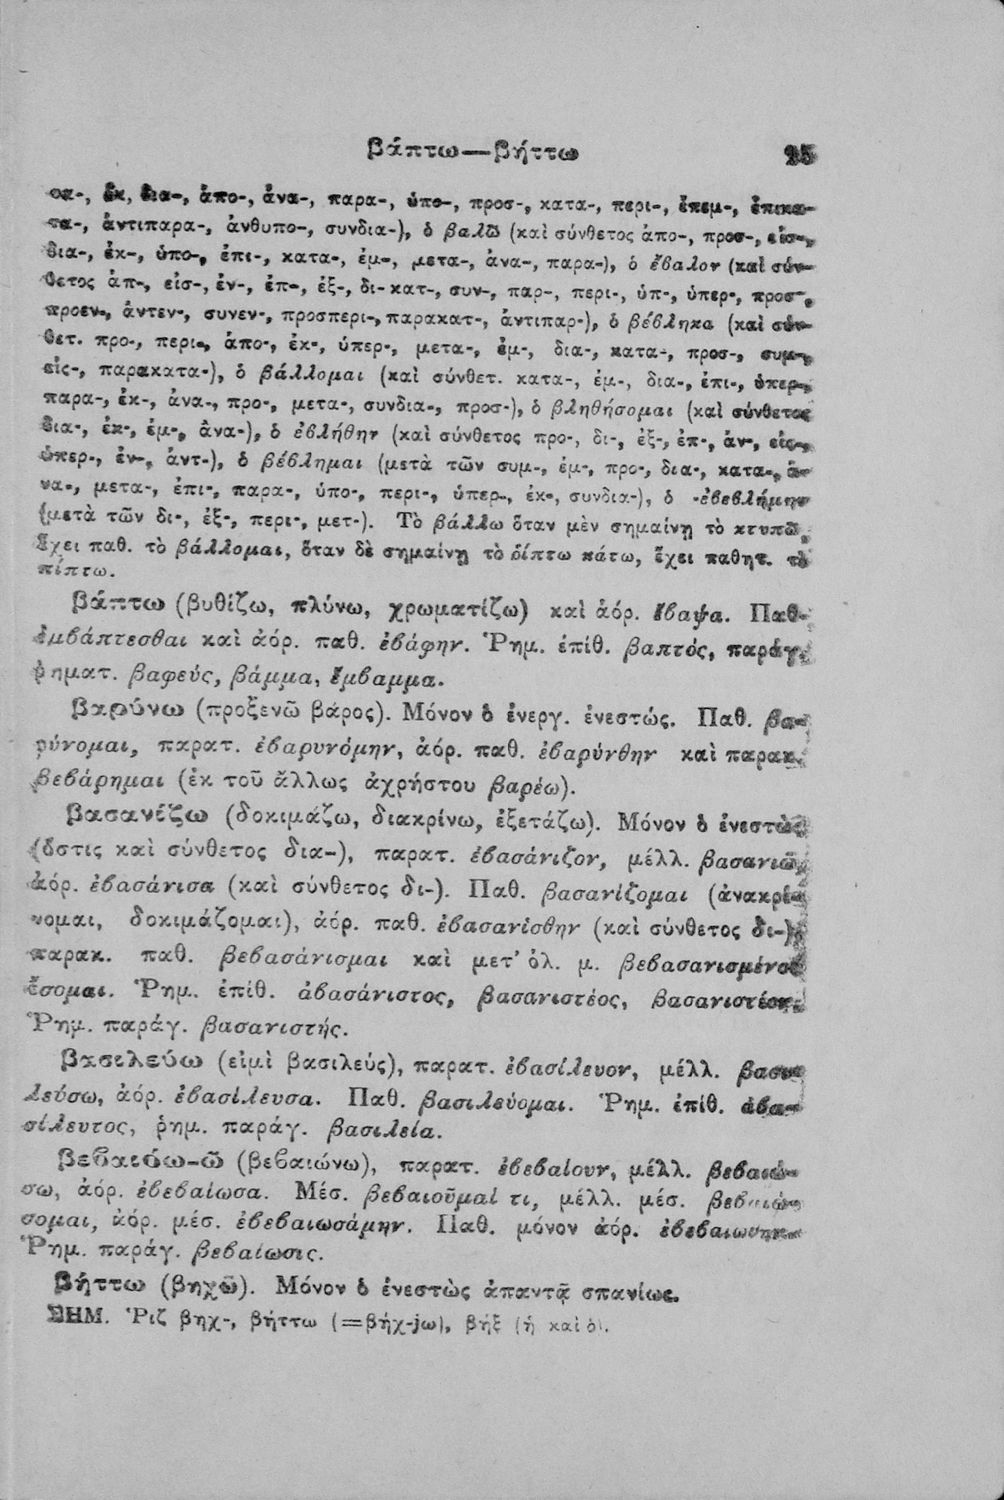 βάπτω—βήττω 25
τα-, ἐκ, δια-, ἀπο-, ἀνα-, παρα-, ὑπο-, προσ-, κατα-, περι-, ἐπεμ-, ἐπικα-
τα-, ἀντιπαρα-, ἀνθυπο-, συνδια-), ὁ βαλῶ (καὶ σύνθετος ἀπο-, προσ-, εἰσ-,
δια-, ἐκ-, ὑπο-, ἐπι-, κατα-, ἐμ-, μετα-, ἀνα-, παρα-), ὁ ἔβαλον (καὶ σύν-
θετος ἀπ-, εἰσ-, ἐν-, ἐπ-, ἐξ-, δι- κατ-, συν-, παρ-, περι-, ὑπ-, ὑπερ-, προσ-,
προεν-, ἀντεν-, συνεν-, προσπερι-, παρακατ-, ἀντιπαρ-), ὁ βέβληκα (καὶ σύν-
θετ. προ-, περι-, ἀπο-, ἐκ-, ὑπερ-, μετα-, ἐμ-, δια-, κατα-, προσ-, συμ-,
εἰς-, παρακατα-), ὁ βάλλομαι (καὶ σύνθετ. κατα-, ἐμ-, δια-, ἐπι-, ὑπερ-,
παρα-, ἐκ-, ἀνα-, προ-, μετα-, συνδια-, προσ-), ὁ βληθήσομαι (καὶ σύνθετος
δια-, ἐκ-, ἐμ-, ἀνα-), ὁ ἐβλήθην (καὶ σύνθετος προ-, δι-, ἐξ-, ἐπ-, ἀν-, εἰς-,
ὑπερ-, ἐν-, ἀντ-), ὁ βέβλημαι (μετὰ τῶν συμ-, ἐμ-, προ-, δια-, κατα-, ἀ-
να-, μετα-, ἐπι-, παρα-, ὑπο-, περι-, ὑπερ-, ἐκ-, συνδια-), ὁ -ἐβεβλήμην
(μετὰ τῶν δι-, ἐξ-, περι-, μετ-). Τὸ βάλλω ὅταν μὲν σημαίνῃ τὸ κτυπῶ,
ἔχει παθ. τὸ βάλλομαι, ὅταν δὲ σημαίνῃ τὸ ῥίπτω κάτω, ἔχει παθητ. τὸ
πίπτω.
βάπτω (βυθίζω, πλύνω, χρωματίζω) καὶ ἀόρ. ἔβαψα. Παθ.
ἐμβάπτεσθαι καὶ ἀόρ. παθ. ἐβάφην. Ῥημ. ἐπίθ. βαπτὸς, παράγ.
ῥηματ. βαφεύς, βάμμα, ἔμβαμμα.
βαρύνω (προξενῶ βάρος). Μόνον ὁ ἐνεργ. ἐνεστώς. Παθ. βα-
ρύνομαι, παρατ. ἐβαρυνόμην, ἀόρ. παθ. ἐβαρύνθην καὶ παρακ.
βεβάρημαι (ἐκ τοῦ ἄλλως ἀχρήστου βαρέω).
βασανίζω (δοκιμάζω, διακρίνω, ἐξετάζω). Μόνον ὁ ἐνεστὼς
(ὅστις καὶ σύνθετος δια-), παρατ. ἐβασάνιζον, μέλλ. βασανιῶ,
ἀόρ. ἐβασάνισα (καὶ σύνθετος δι-). Παθ. βασανίζομαι (ἀνακρί-
νομαι, δοκιμάζομαι), ἀόρ. παθ. ἐβασανίσθην (καὶ σύνθετος δι-),
παρακ. παθ. βεβασάνισμαι καὶ μετ' ὀλ. μ. βεβασανισμένος
ἔσομαι. Ῥημ. ἐπίθ. ἀβασάνιστος, βασανιστέος, βασανιστέον.
Ῥημ. παράγ. βασανιστής.
βασιλεύω (εἰμὶ βασιλεύς), παρατ. ἐβασίλευον, μέλλ. βασι-
λεύσω, ἀόρ. ἐβασίλευσα. Παθ. βασιλεύομαι. Ῥημ. ἐπίθ. ἀβα-
σίλευτος, ῥημ. παράγ. βασιλεία.
βεβαιόω-ῶ (βεβαιώνω), παρατ. ἐβεβαίουν, μέλλ. βεβαιώ-
σω, ἀόρ. ἐβεβαίωσα. Μέσ. βεβαιοῦμαί τι, μέλλ. μέσ. βεβαιώ-
σομαι, ἀόρ. μέσ. ἐβεβαιωσάμην. Παθ. μόνον ἀόρ. ἐβεβαιώθην.
Ῥημ. παράγ. βεβαίωσις.
βήττω (βηχῶ). Μόνον ὁ ἐνεστὼς ἀπαντᾷ σπανίως.
ΣΗΜ. Ῥιζ βηχ-, βήττω (=βήχ-jω), βήξ (ἡ καὶ ὁ).